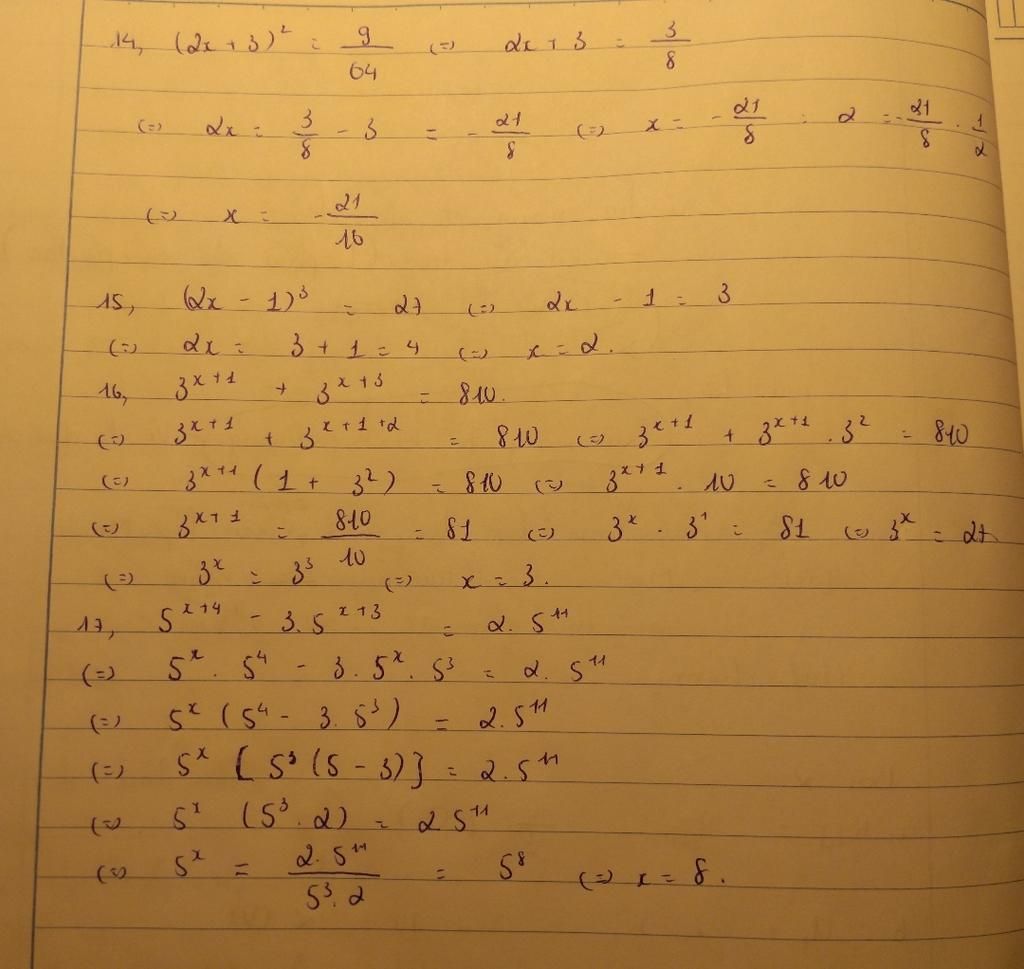 14, (2x + 3)² = 9/64 (=) 2x + 3 = 3/8
(=) 2x = 3/8 - 3 = - 21/8 (=) x = - 21/8 : 2 = - 21/8 . 1/2
(=) x = - 21/16
15, (2x - 1)³ = 27 (=) 2x - 1 = 3
(=) 2x = 3 + 1 = 4 (=) x = 2.
16, 3^(x+1) + 3^(x+3) = 810.
(=) 3^(x+1) + 3^(x+1+2) = 810 (=) 3^(x+1) + 3^(x+1) . 3² = 810
(=) 3^(x+1) (1 + 3²) = 810 (=) 3^(x+1) . 10 = 810
(=) 3^(x+1) = 810/10 = 81 (=) 3^x . 3¹ = 81 (=) 3^x = 27
(=) 3^x = 3³ (=) x = 3.
17, 5^(x+4) - 3.5^(x+3) = 2. 5¹¹
(=) 5^x . 5⁴ - 3. 5^x . 5³ = 2. 5¹¹
(=) 5^x (5⁴ - 3. 5³) = 2.5¹¹
(=) 5^x [5³ (5 - 3)] = 2.5¹¹
(=) 5^x (5³ . 2) = 2 5¹¹
(=) 5^x = 2.5¹¹/5³.2 = 5⁸ (=) x = 8.